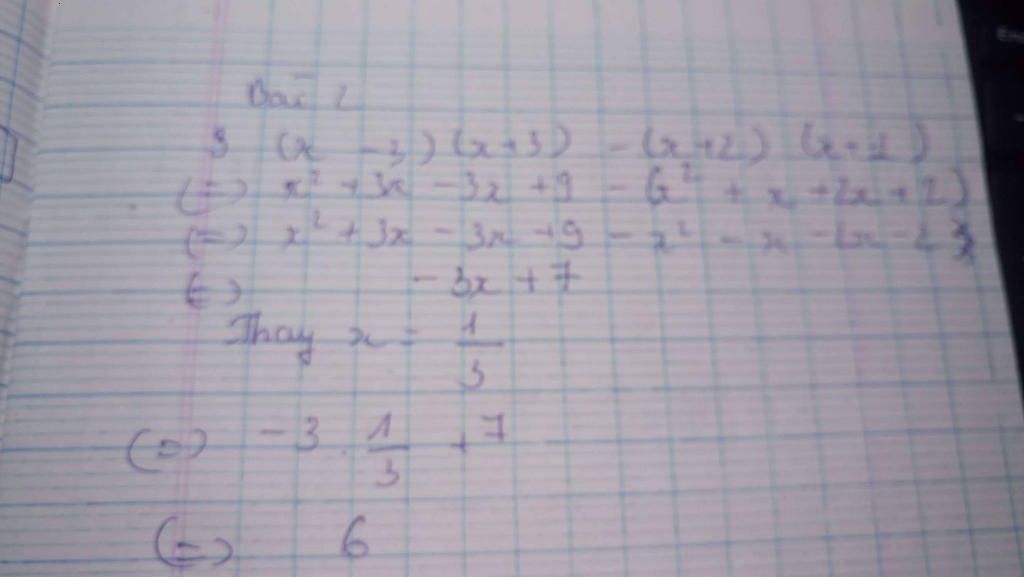 Bài 2
3 (x - 3) (x+3) - (x+2) (x+1)
(=) x² + 3x - 3x + 9 - (x² + x + 2x + 2)
(=) x² + 3x - 3x + 9 - x² - x - 2x - 2
(=) - 3x + 7
Thay x = 1/3
(=) - 3 . 1/3 + 7
(=) 6